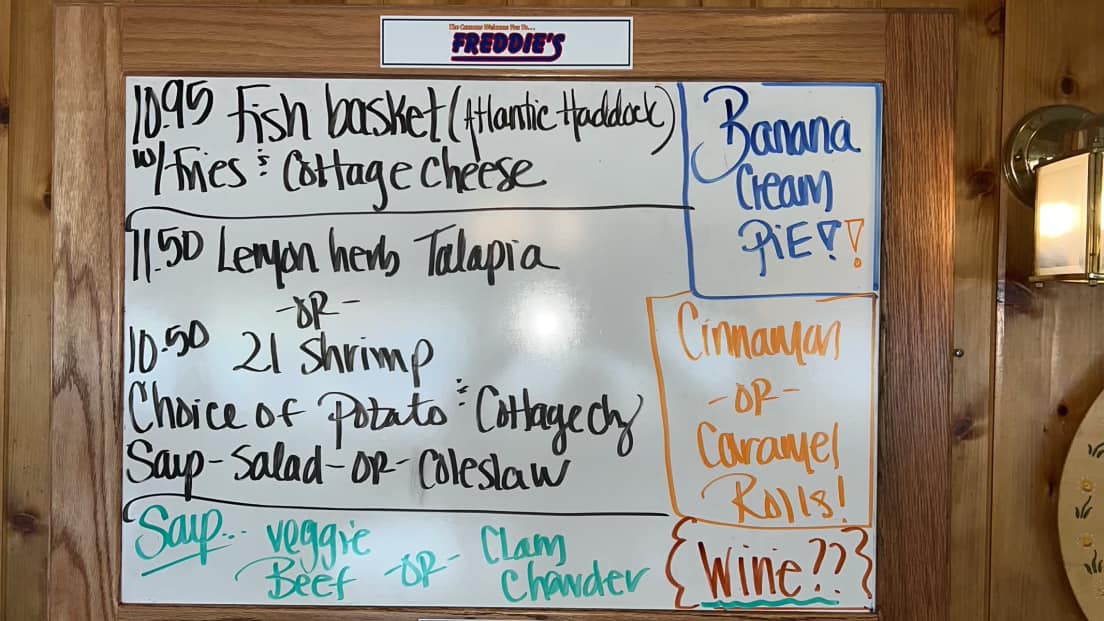 The Cannons Welcome You To...
FREDDIE'S
10.95 Fish basket (Atlantic Haddock)
w/ Fries & Cottage cheese
11.50 Lemon herb Talapia
-OR-
10.50 21 Shrimp
Choice of Potato & Cottage ch
Soup-Salad-OR-Coleslaw
Soup... veggie
Beef -OR- Clam
Chowder
Banana
Cream
PiE!!
Cinnamon
-OR-
Caramel
Rolls!
{Wine??}